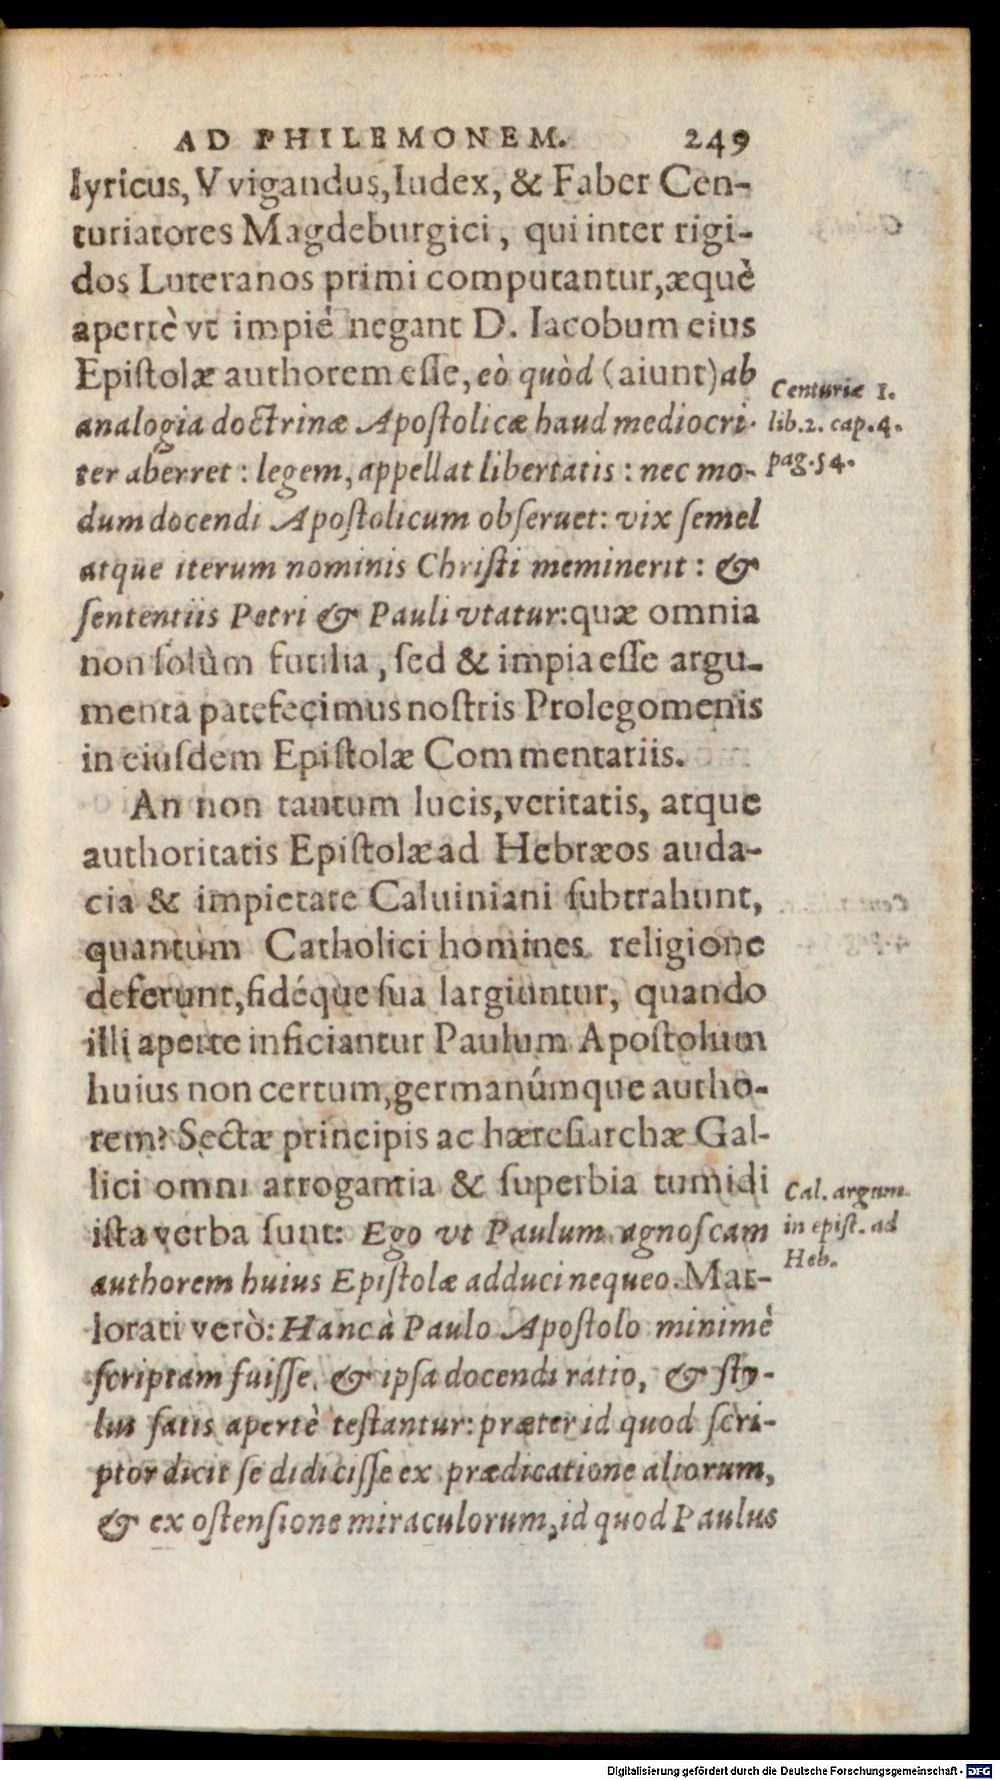 AD PHILEMONEM. 249
lyricus, Vvigandus, Iudex, & Faber Cen-
turiatores Magdeburgici, qui inter rigi-
dos Luteranos primi computantur, æquè
apertè vt impiè negant D. Iacobum eius
Epiſtolæ authorem eſſe, eò quòd (aiunt) ab
analogia doctrinæ Apoſtolicæ haud mediocri-
ter aberret : legem, appellat libertatis : nec mo-
dum docendi Apoſtolicum obſeruet: vix ſemel
atque iterum nominis Chriſti meminerit : &
ſententiis Petri & Pauli vtatur: quæ omnia
non ſolùm futilia, ſed & impia eſſe argu-
menta patefecimus noſtris Prolegomenis
in eiuſdem Epiſtolæ Commentariis.
An non tantum lucis, veritatis, atque
authoritatis Epiſtolæ ad Hebræos auda-
cia & impietate Caluiniani ſubtrahunt,
quantum Catholici homines religione
deferunt, fidéque ſua largiuntur, quando
illi aperte inficiantur Paulum Apoſtolum
huius non certum, germanúmque autho-
rem? Sectæ principis ac hæreſiarchæ Gal-
lici omni arrogantia & ſuperbia tumidi
iſta verba ſunt: Ego vt Paulum agnoſcam
authorem huius Epiſtolæ adduci nequeo. Mar-
lorati verò: Hanc à Paulo Apoſtolo minimè
ſcriptam fuiſſe, & ipſa docendi ratio, & ſty-
lus ſatis apertè teſtantur: præter id quod ſcri-
ptor dicit ſe didiciſſe ex prædicatione aliorum,
& ex oſtenſione miraculorum, id quod Paulus
Centuriæ 1.
lib.2. cap.4.
pag.54.
Cal. argum.
in epiſt. ad
Heb.
Digitalisierung gefördert durch die Deutsche Forschungsgemeinschaft - DFG